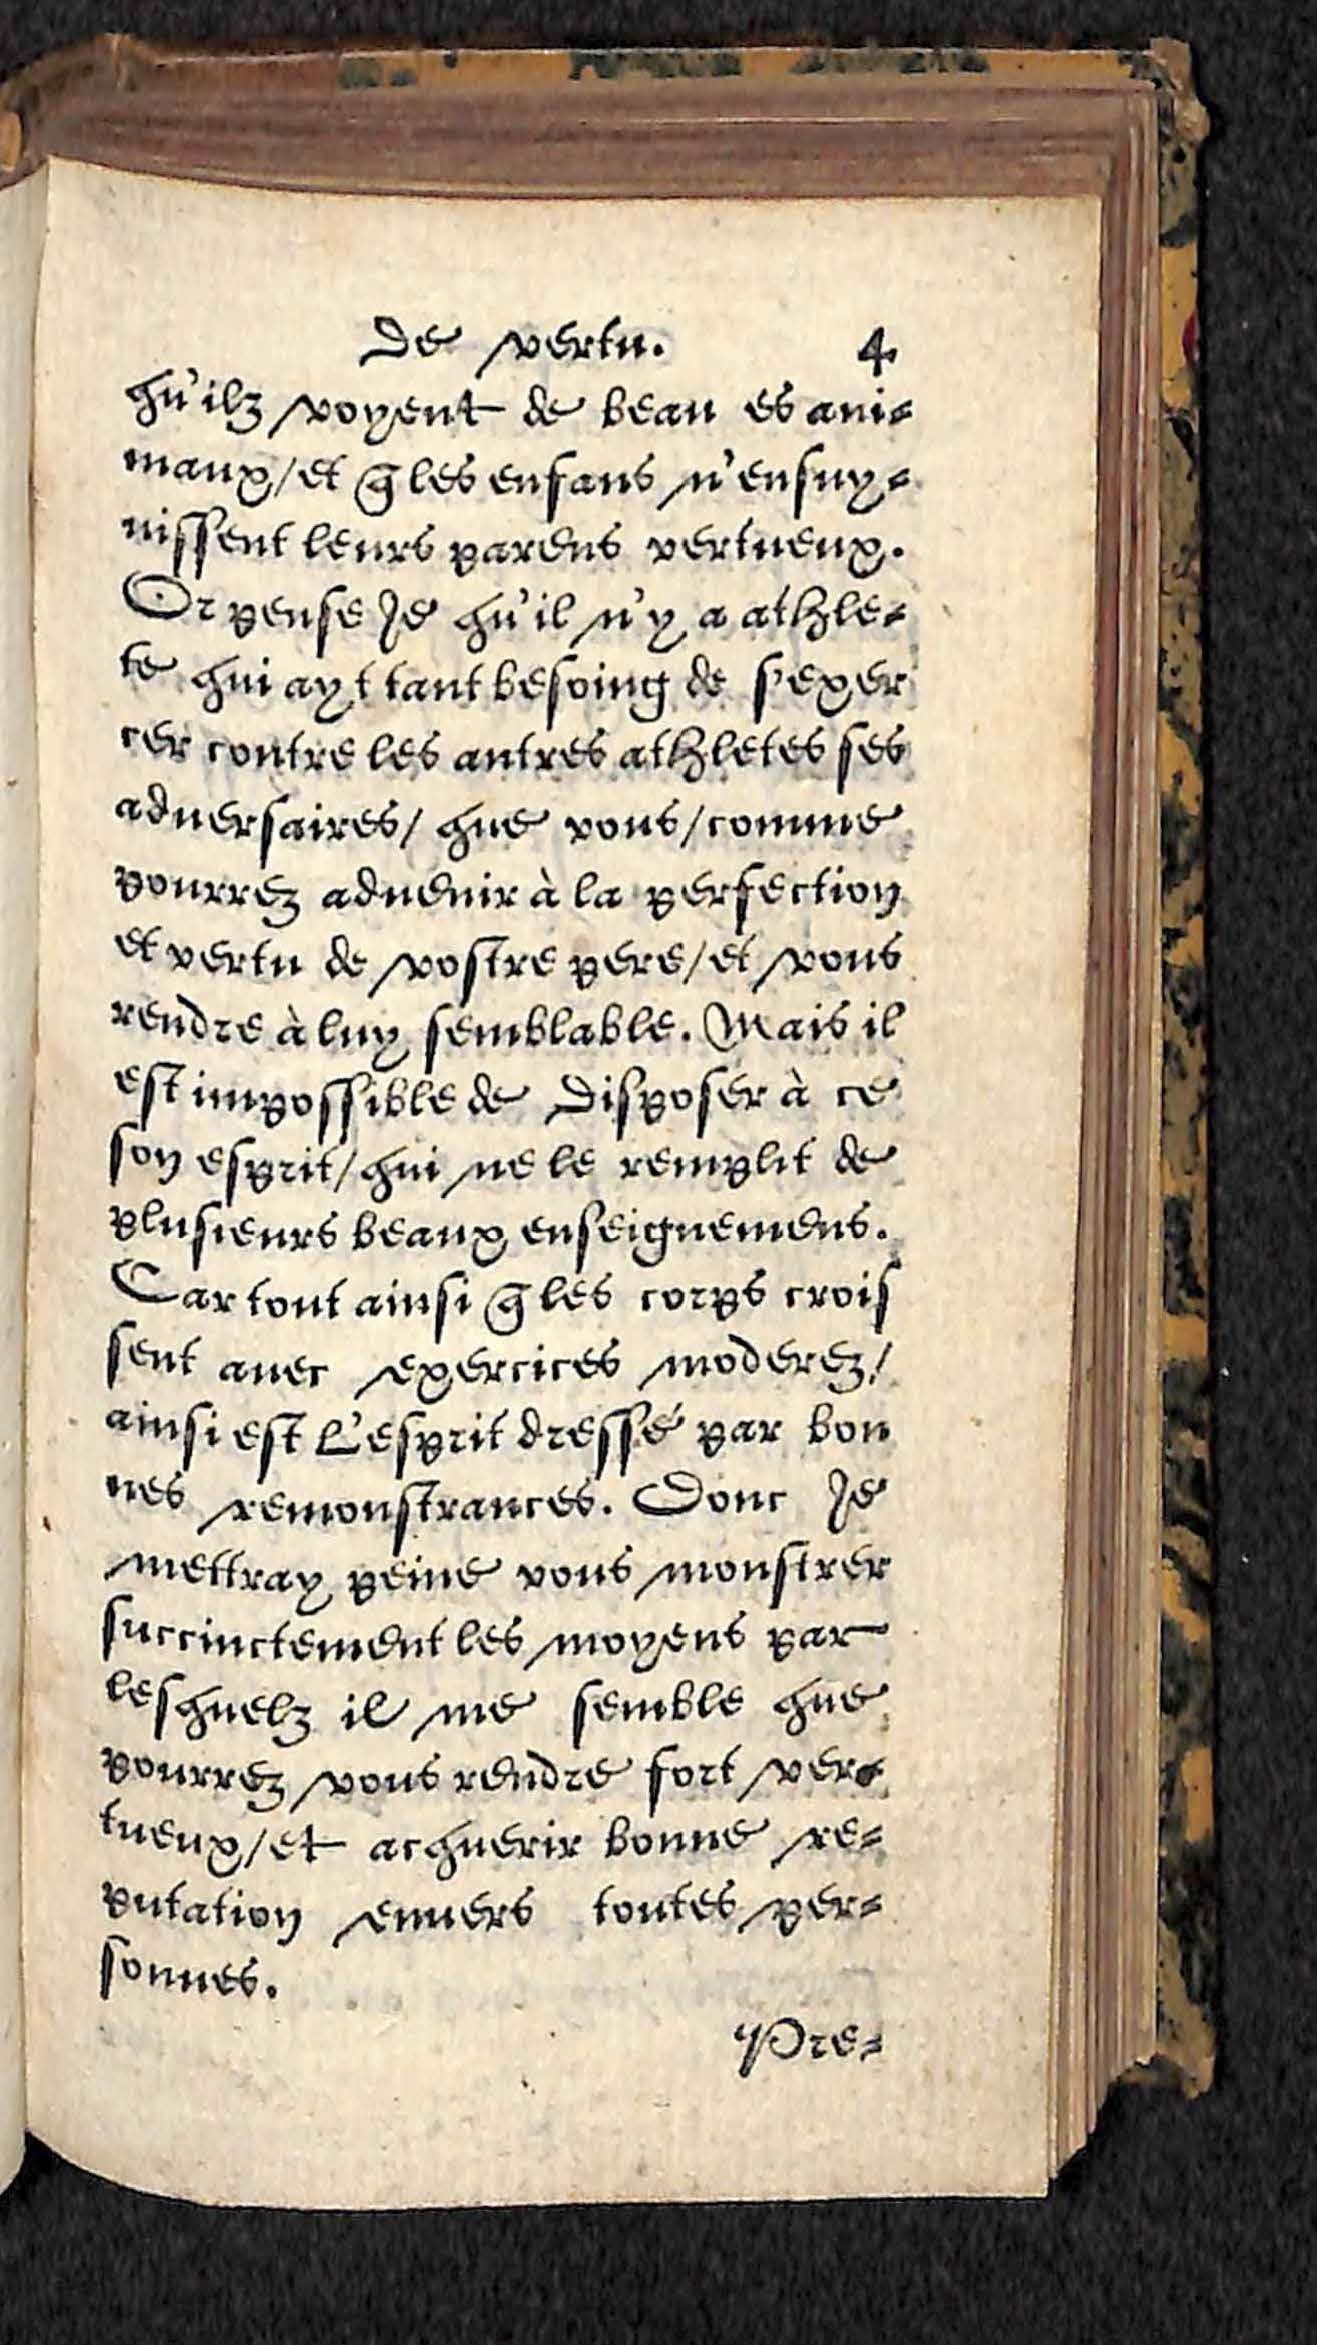 De vertu. 4
qu'ilz voyent de beau es ani=
maux/et q̃ les enfans n'ensuy=
uissent leurs parens vertueux.
Or pense Je qu'il n'y a athle=
te qui ayt tant besoing de s'exer
cer contre les autres athletes ses
aduersaires/ que vous/comme
pourrez aduenir à la perfection
et vertu de vostre pere/et vous
rendre à luy semblable. Mais il
est impossible de disposer à ce
son esprit/qui ne le remplit de
plusieurs beaux enseignemens.
Car tout ainsi q̃ les corps crois
sent auec exercices moderez/
ainsi est l'esprit dressé par bon
nes remonstrances. Donc Je
mettray peine vous monstrer
succinctement les moyens par
lesquelz il me semble que
pourrez vous rendre fort ver=
tueux/et acquerir bonne re=
putation enuers toutes per=
sonnes.
Pre=